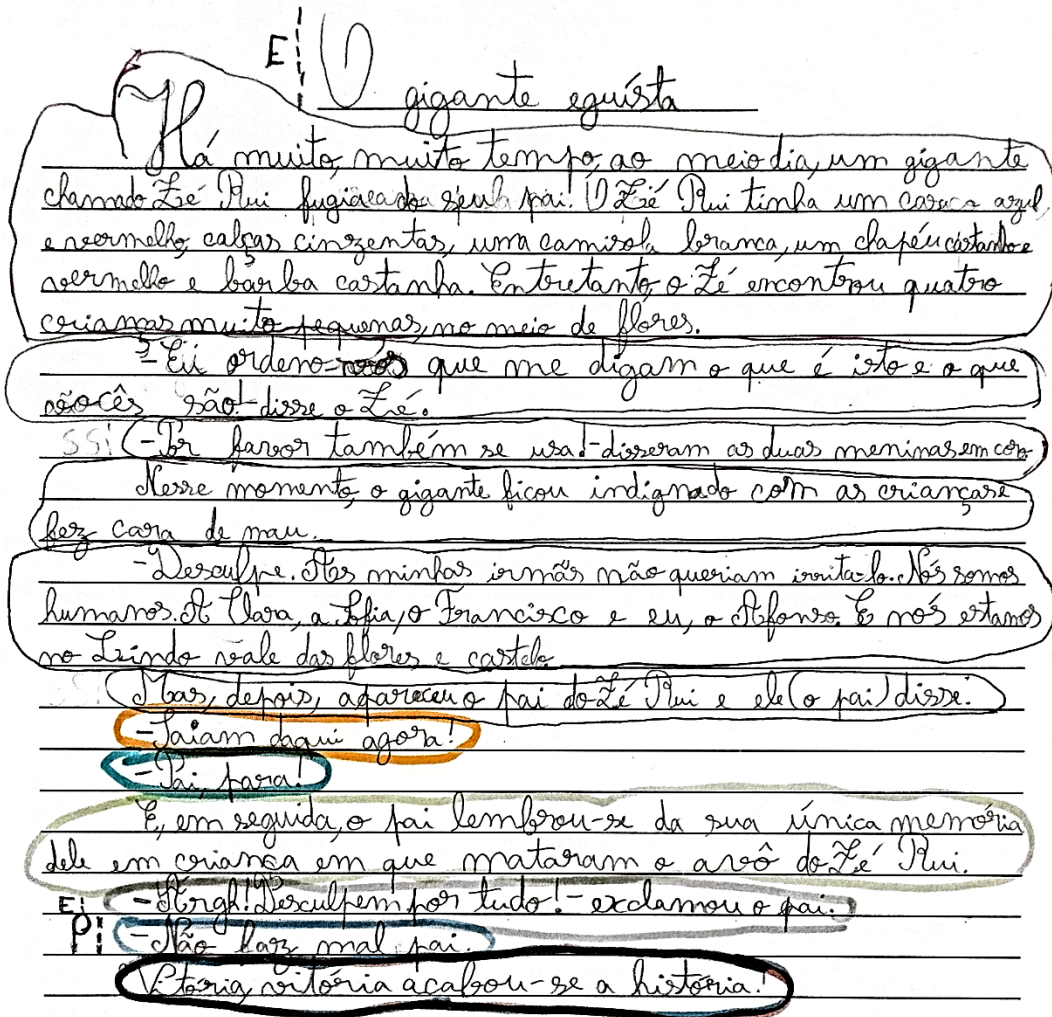 E
O gigante eguísta
Há muito, muito tempo, ao meio dia, um gigante
chamado Zé Rui pai! O Zé Rui tinha um casaco azul,
e vermelho, calças cinzentas, uma camisola branca, um chapéu castanho e
vermelho e bárba castanha. Entretanto, o Zé encontrou quatro
crianças muito pequenas, no meio de flores.
-Eu ordeno-vos que me digam o que é isto e o que
vocês são!-disse o Zé.
-Por favor também se usa!-disseram as duas meninas em coro
Nesse momento, o gigante ficou indignado com as crianças e
fez cara de mau.
-Desculpe. As minhas irmãs não queriam irrita-lo. Nós somos
humanos. A Clara, a Sofia, o Francisco e eu, o Afonso. E nós estamos
no Lindo vale das flores e castelo.
Mas, depois, apareceu o pai do Zé Rui e ele (o pai) disse:
-Saiam daqui agora!
-Pai, para!
E, em seguida, o pai lembrou-se da sua única memória
dele em criança em que mataram o avô do Zé Rui.
-Árgh! Desculpem por tudo!-exclamou o pai.
E
P
-Não faz mal pai.
Vitória, vitória acabou-se a história!